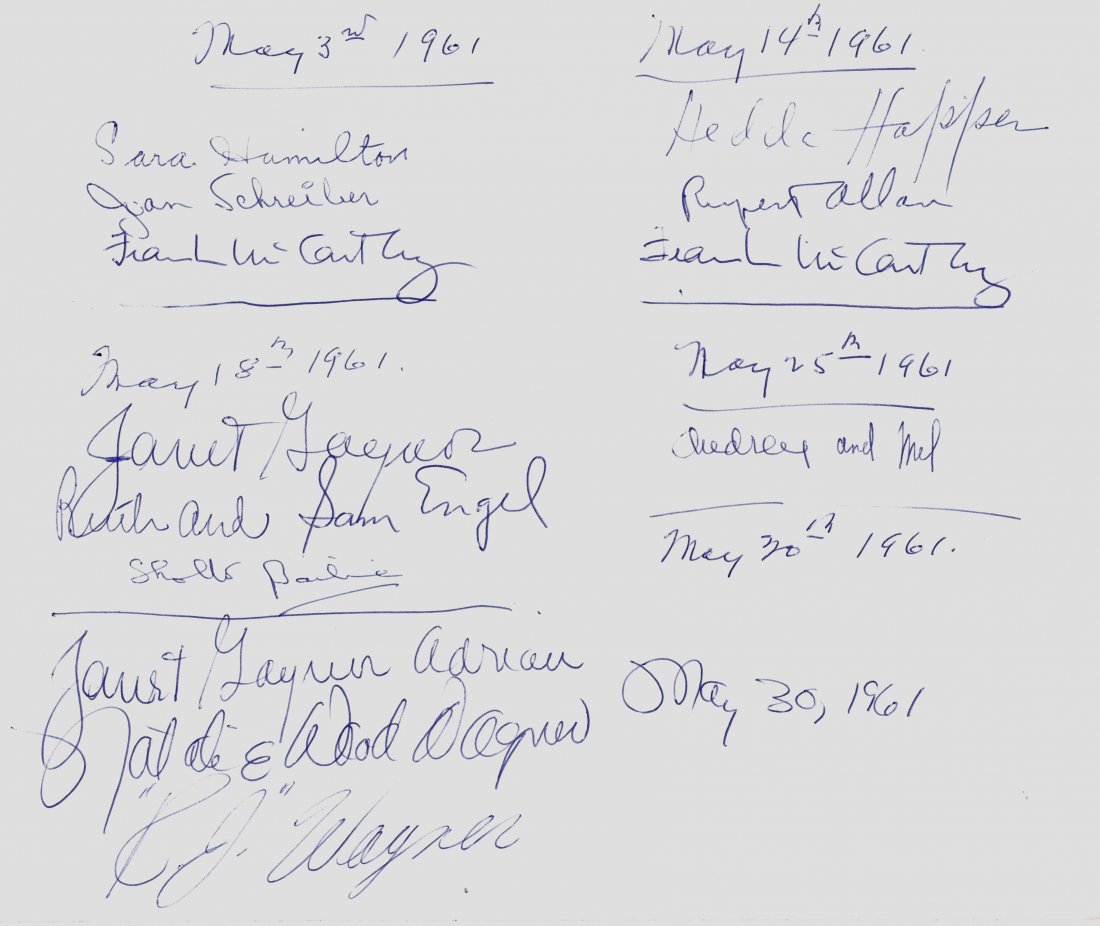 May 3rd 1961
Sara Hamilton
Jean Schreiber
Frank McCarthy
May 14th 1961.
Hedda Hopper
Rupert Allan
Frank McCarthy
May 18th 1961.
Janet Gaynor
Ruth and Sam Engel
May 25th 1961
Audrey and Mel
May 30th 1961.
Janet Gaynor Adrian
Natalie Wood Wagner
"R.J." Wagner
May 30, 1961